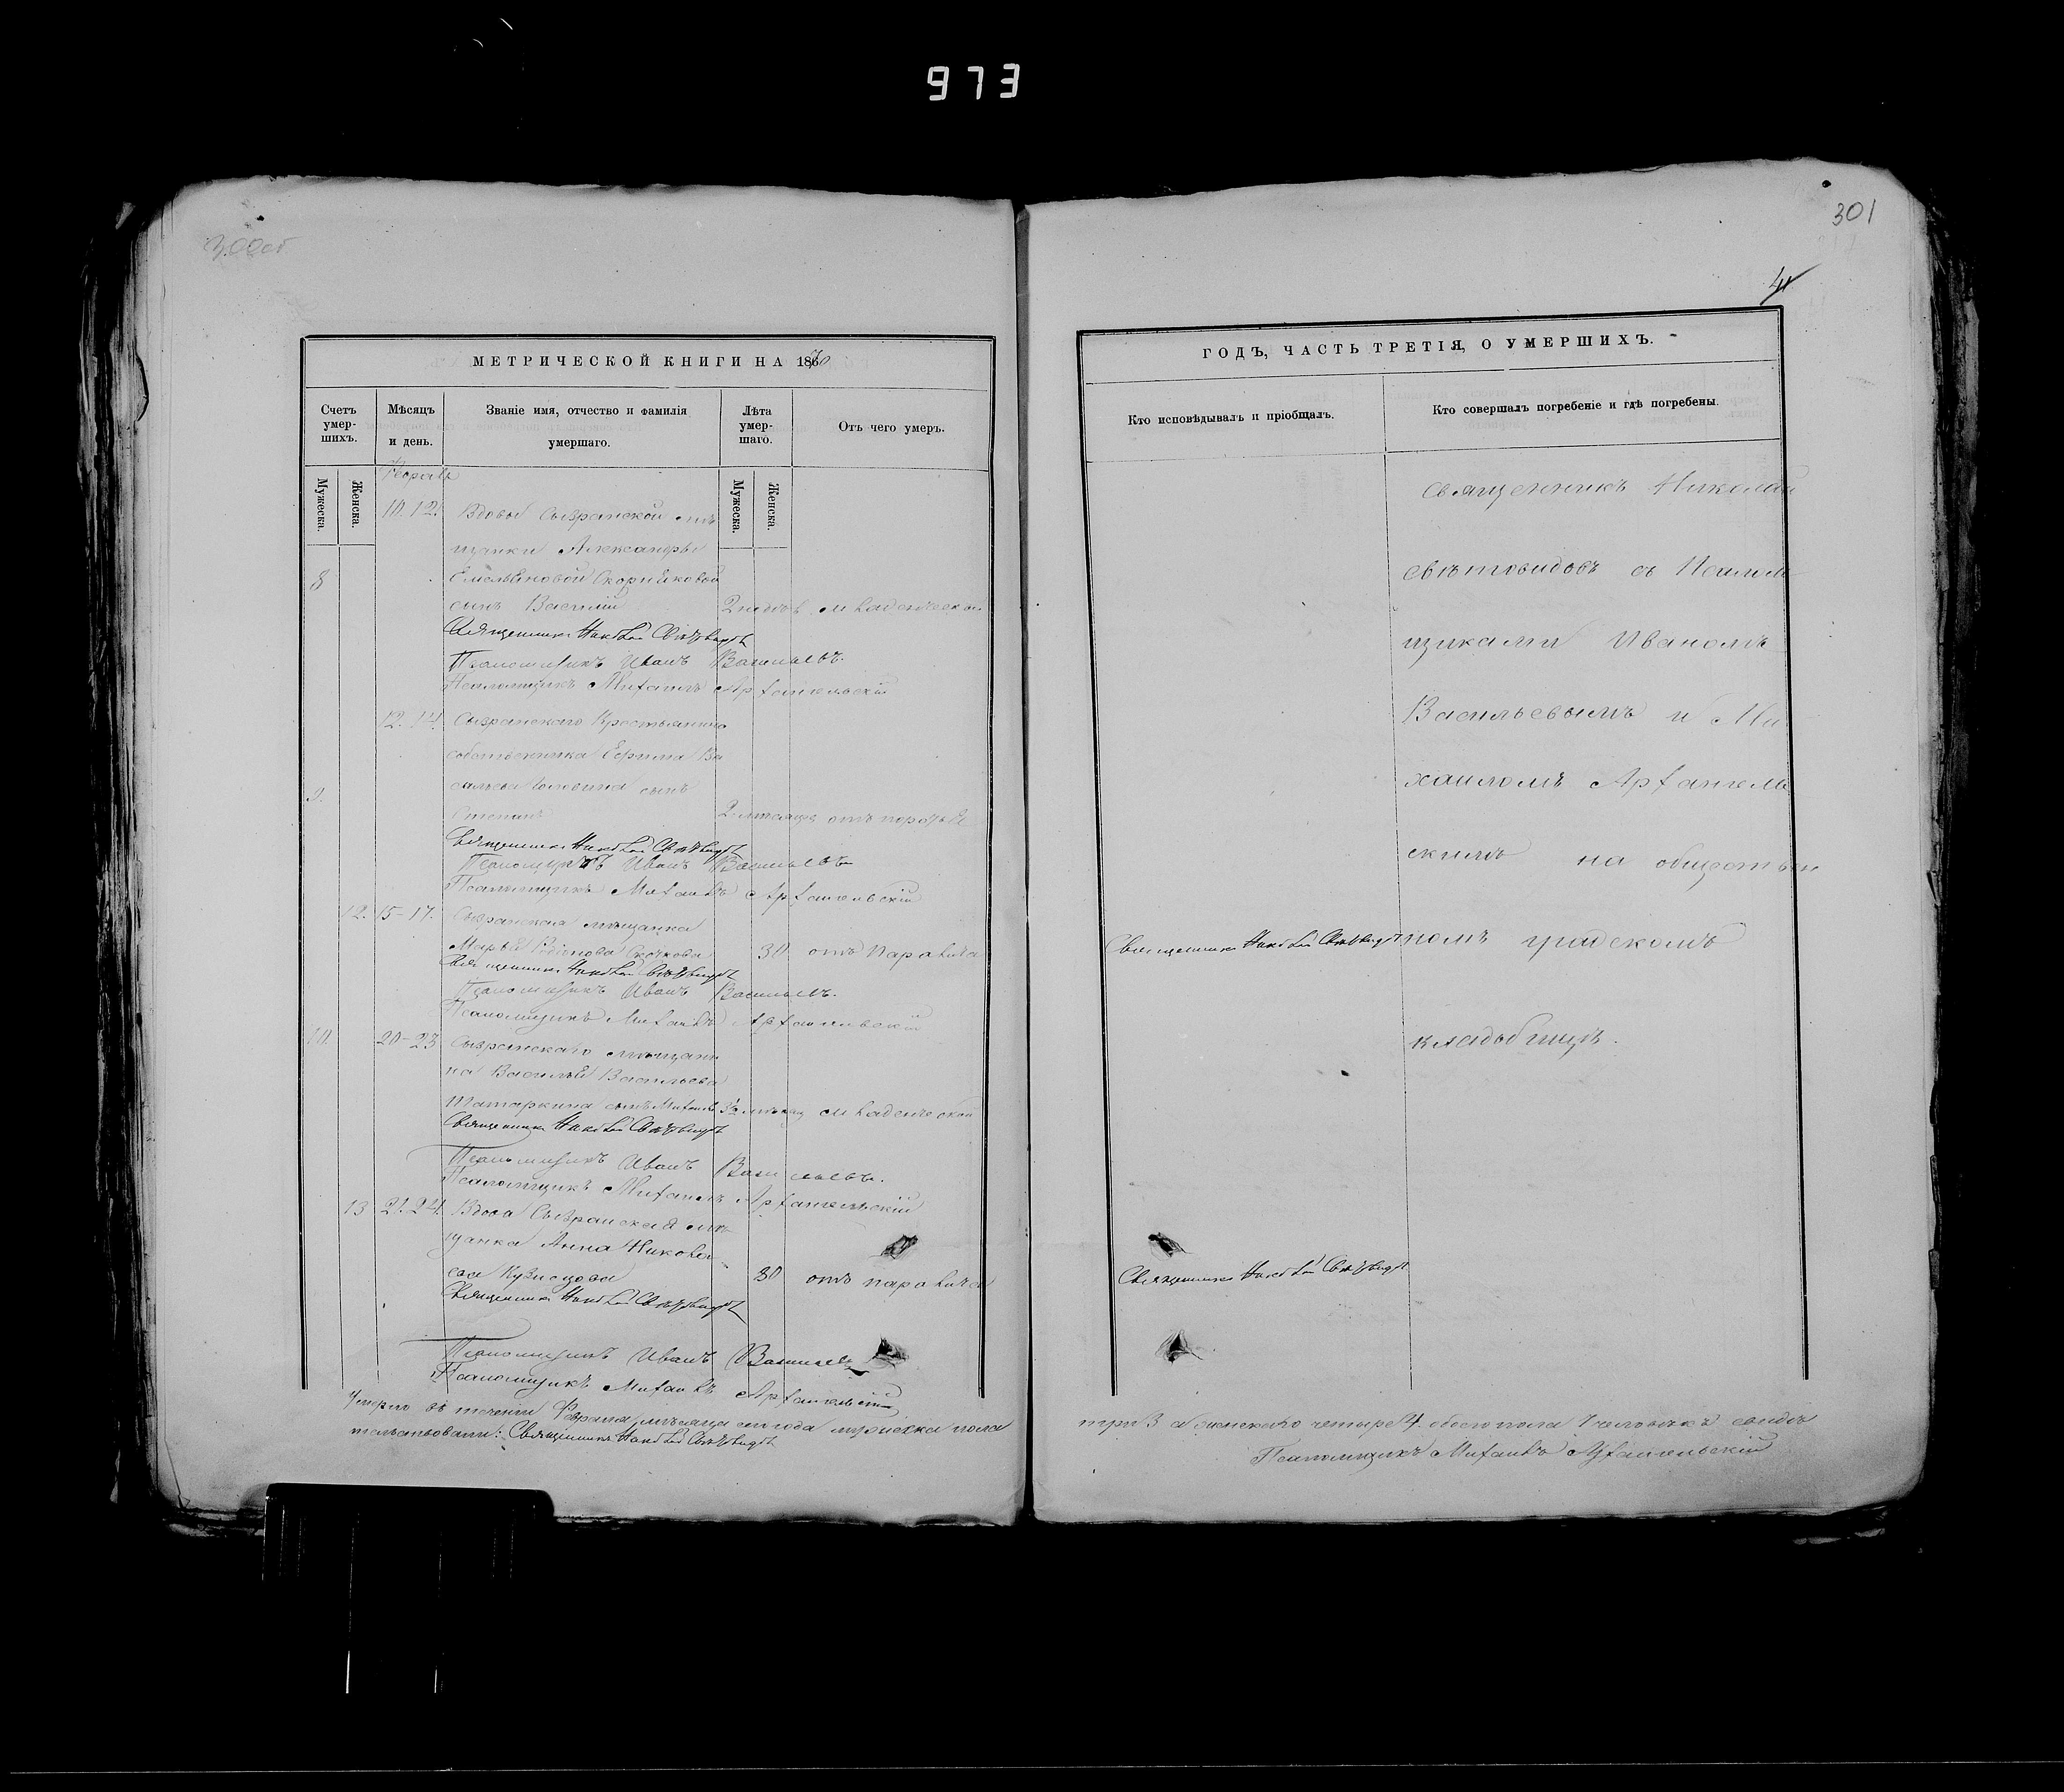 973
300об
301
4
МЕТРИЧЕСКОЙ КНИГИ НА 1870
Счетъ умер-шихъ.
Мужеска.
Женска.
Мѣсяцъ и день.
Званіе имя, отчество и фамилія умершаго.
Лѣта умер-шаго.
Мужеска.
Женска.
Отъ чего умеръ.
10. 12. Вдовы Сызранской мѣ
щанки Александры
8 Емельяновой Скорняковой
сынъ Василій 2 младенческой
Священникъ Николай Свѣтовидовъ
Псаломщикъ Иванъ Васильевъ.
Псаломщикъ Михаилъ Архангельскій
12. 14. Сызранскаго Крестьянина
собственника Ефима Ва
9. сильева сынъ
Степанъ 2 мѣсяца отъ
Священникъ Николай Свѣтовидовъ
Псаломщикъ Иванъ Васильевъ
Псаломщикъ Михаилъ Архангельскій
12. 15-17. Сызранская мѣщанка
Марья 30 отъ паралича
Священникъ Николай Свѣтовидовъ
Псаломщикъ Иванъ Васильевъ.
Псаломщикъ Михаилъ Архангельскій
10. 20-23 Сызранскаго мѣщани
на Василья Васильева
Татаркина сынъ Михаилъ 3½ мѣсяц младенческой
Священникъ Николай Свѣтовидовъ
Псаломщикъ Иванъ Васильевъ.
Псаломщикъ Михаилъ Архангельскій
13 21. 24. Вдова Сызранская мѣ
щанка Анна Никола
ева Кузнецова 80 отъ паралича
Священникъ Николай Свѣтовидовъ
Псаломщикъ Иванъ Васильевъ
Псаломщикъ Михаилъ Архангельскій
Умерло въ теченіи Февраля мѣсяца сего года мужеска пола
тельствовали: Священникъ Николай Свѣтовидовъ
ГОДЪ, ЧАСТЬ ТРЕТІЯ, О УМЕРШИХЪ.
Кто исповѣдывалъ и пріобщалъ.
Кто совершалъ погребеніе и гдѣ погребены.
Священникъ Николай
Свѣтовидовъ съ Псалом
щиками Иваномъ
Васильевымъ и Ми
хаиломъ Архангель
скимъ на обществен
Священникъ Николай Свѣтовидовъ номъ градскомъ
кладбищѣ.
Священникъ Николай Свѣтовидовъ
три 3 а женскаго четыре 4. обоего пола 7 человѣкъ свидѣ
Псаломщикъ Михаилъ Архангельскій